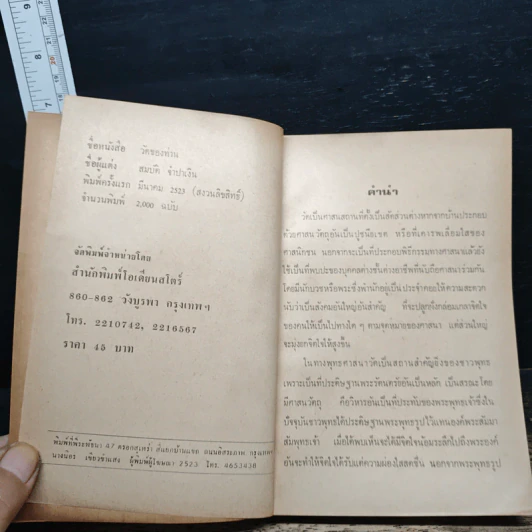 ชื่อหนังสือ วัดของท่าน
ชื่อผู้แต่ง สมบัติ จำปาเงิน
พิมพ์ครั้งแรก มีนาคม 2523 (สงวนลิขสิทธิ์)
จำนวนพิมพ์ 2,000 ฉบับ
จัดพิมพ์จำหน่ายโดย
สำนักพิมพ์โอเดียนสโตร์
860-862 วังบูรพา กรุงเทพฯ
โทร. 2210742, 2216567
ราคา 45 บาท
พิมพ์ที่พีระพัธนา 47 ตรอกสุเหร่า สี่แยกบ้านแขก ถนนอิสรภาพ กรุงเทพฯ
นางนิตร เขียวขำแสง ผู้พิมพ์ผู้โฆษณา 2523 โทร. 4653438
คำนำ
วัดเป็นศาสนสถานที่ตั้งเป็นสัดส่วนต่างหากจากบ้านประกอบ
ด้วยศาสนวัตถุอันเป็นปูชนียเขต หรือที่เคารพเลื่อมใสของ
ศาสนิกชน นอกจากจะเป็นที่ประกอบพิธีกรรมทางศาสนาแล้วยัง
ใช้เป็นที่พบปะของบุคคลต่างชั้นต่างอาชีพที่นับถือศาสนาร่วมกัน
โดยมีนักบวชหรือพระซึ่งพำนักอยู่เป็นประจำคอยให้ความสะดวก
นับว่าเป็นสังคมอันใหญ่อันสำคัญ ที่จะปลูกฝังกล่อมเกลาจิตใจ
ของคนให้เป็นไปทางใด ๆ ตามจุดหมายของศาสนา แต่ส่วนใหญ่
จะมุ่งยกจิตใจให้สูงขึ้น
ในทางพุทธศาสนาวัดเป็นสถานสำคัญยิ่งของชาวพุทธ
เพราะเป็นที่ประดิษฐานพระรัตนตรัยอันเป็นหลัก เป็นสรณะโดย
มีศาสนวัตถุ คือวิหารอันเป็นที่ประทับของพระพุทธเจ้าซึ่งใน
ปัจจุบันชาวพุทธได้ประดิษฐานพระพุทธรูปไว้แทนองค์พระสัมมา
สัมพุทธเจ้า เมื่อได้พบเห็นจะได้มีจิตใจน้อมระลึกไปถึงพระองค์
อันจะทำให้จิตใจได้รับแต่ความผ่องใสสดชื่น นอกจากพระพุทธรูป